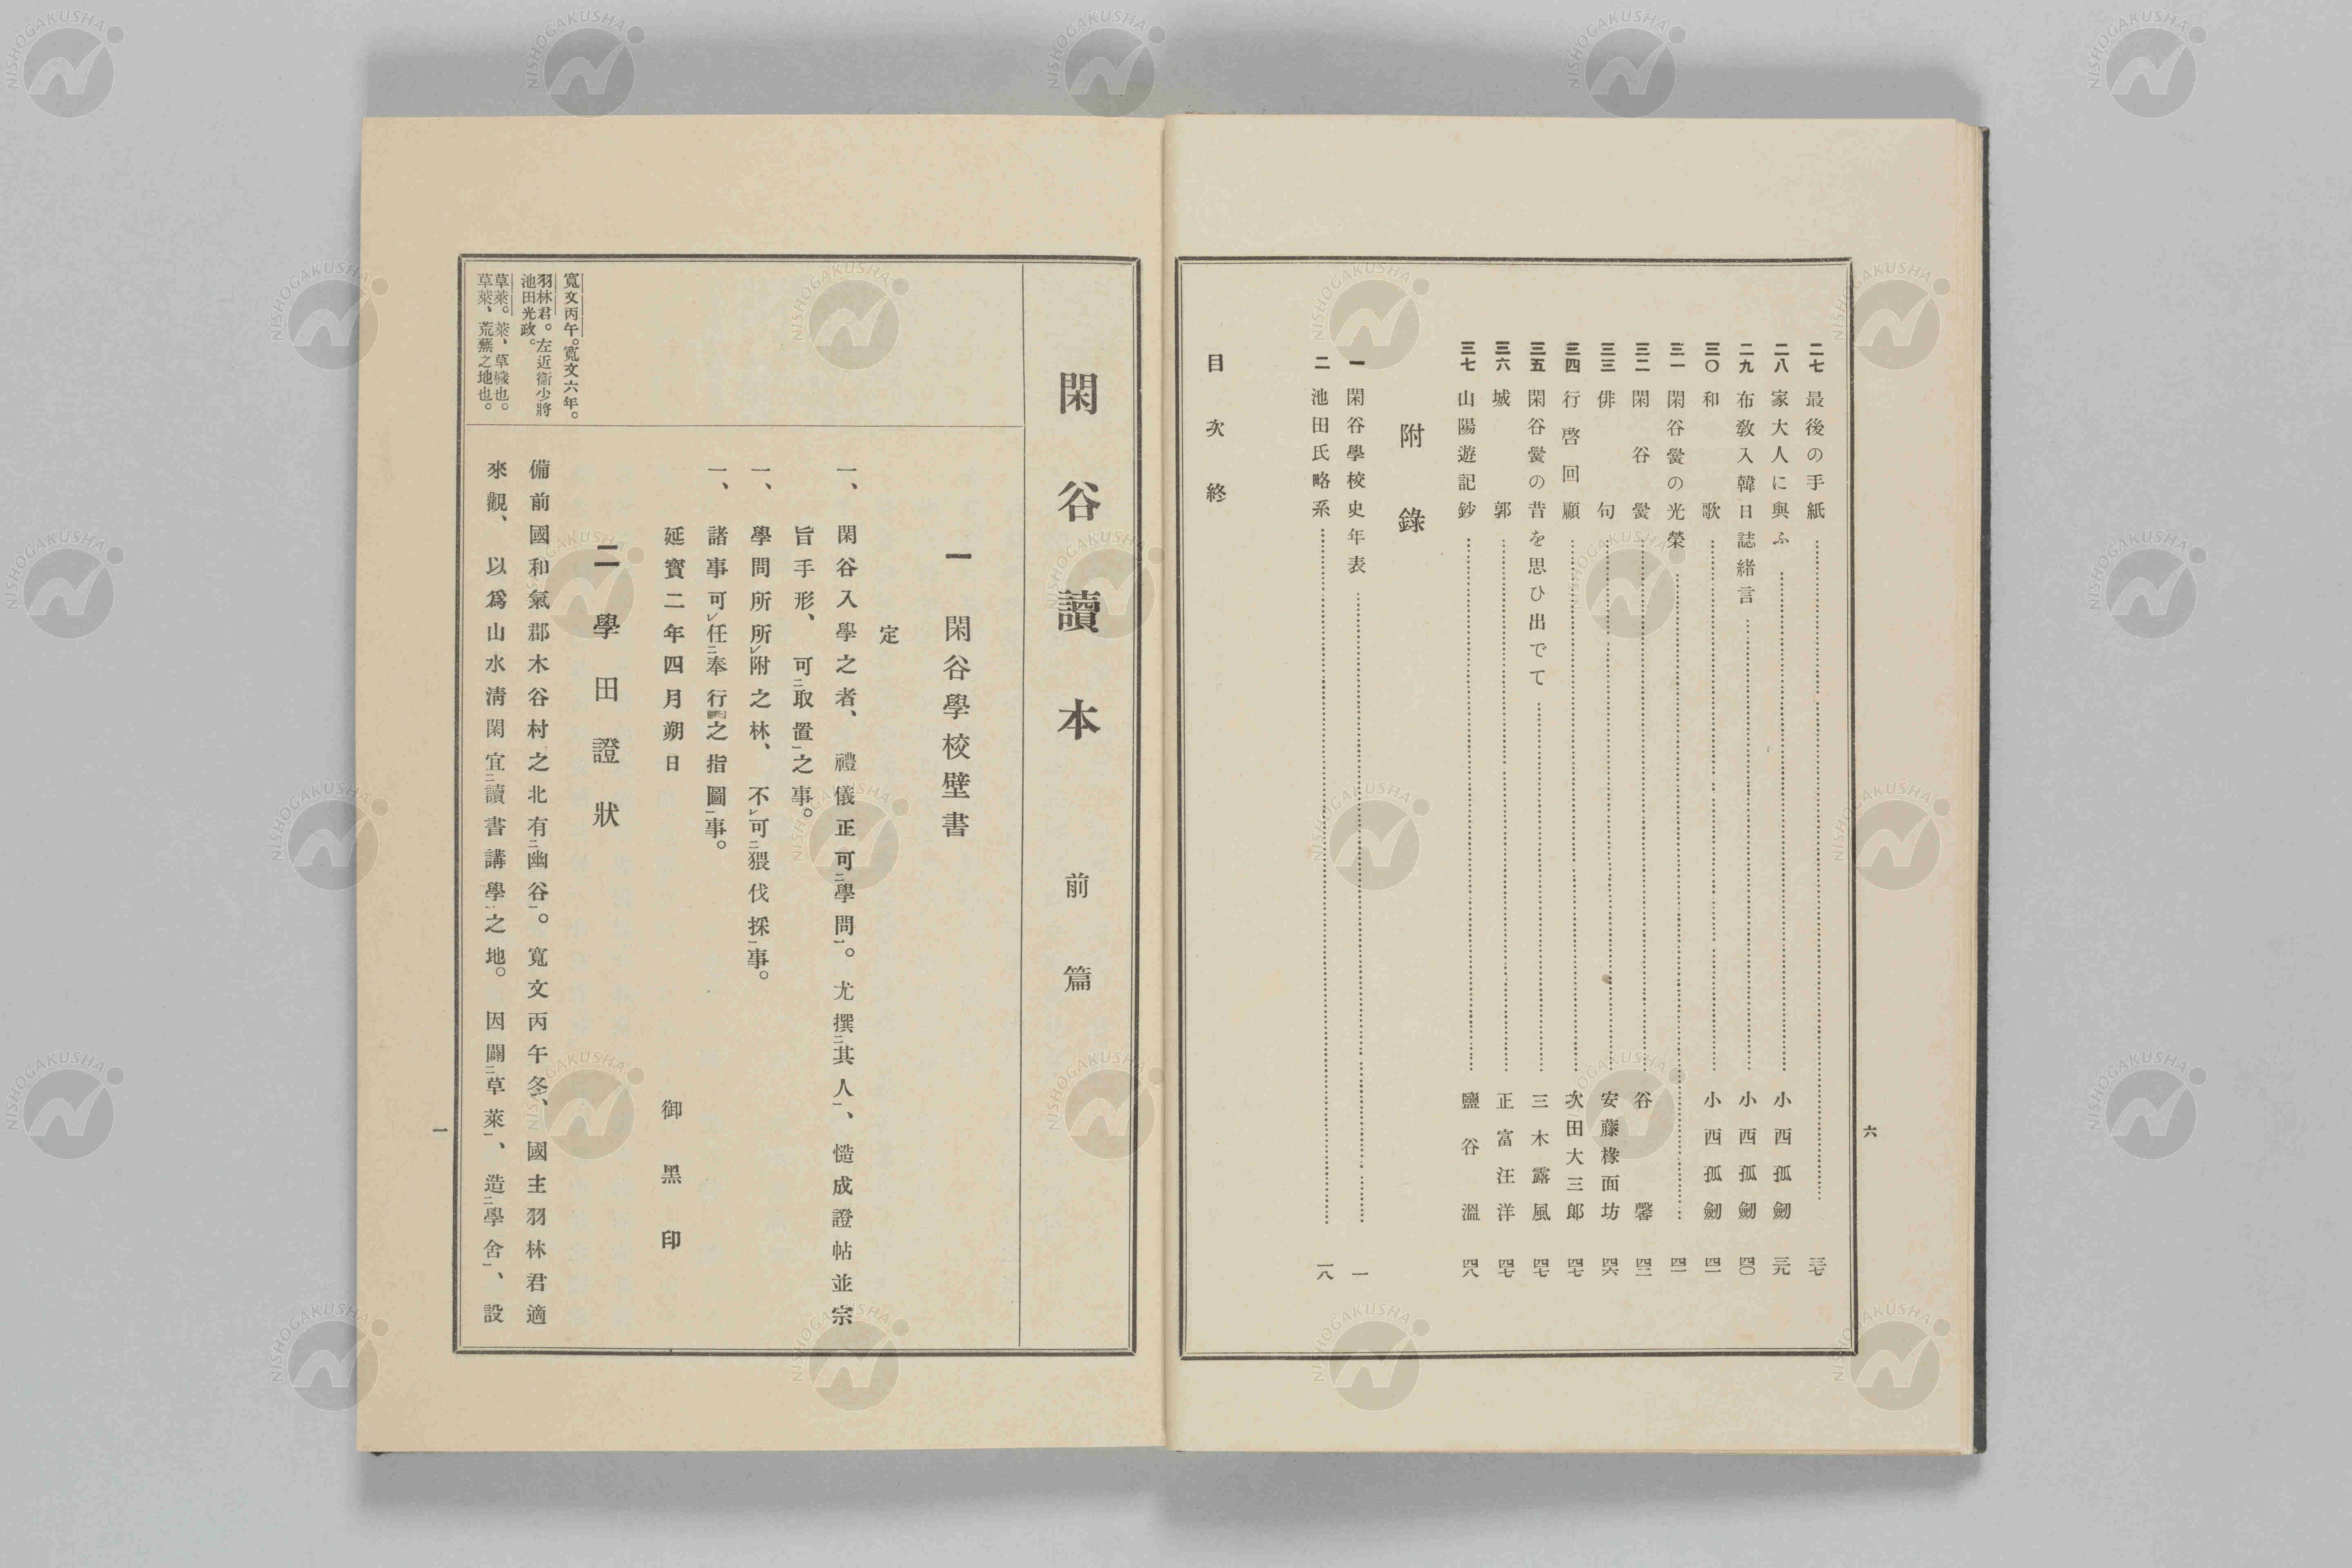 六
二七 最後の手紙 三七
二八 家大人に與ふ 小西孤劒 三九
二九 布敎入韓日誌緒言 小西孤劒 四〇
三〇 和歌 小西孤劒 四一
三一 閑谷黌の光榮 四一
三二 閑谷黌 谷馨
三三 俳句 安藤橡面坊 四六
三四 行啓回顧 次田大三郞 四七
三五 閑谷黌の昔を思ひ出でて 三木露風 四七
三六 城郭 正富汪洋 四七
三七 山陽遊記鈔 鹽谷溫 四八
附錄
一 閑谷學校史年表 一
二 池田氏略系 一八
目次終
閑谷讀本 前篇
一 閑谷學校壁書
定
一、閑谷入學之者、禮儀正可二學問一。尤撰二其人一、慥成證帖並宗
旨手形、可二取置一之事。
一、學問所所レ附之林、不レ可二猥伐採一事。
一、諸事可レ任二奉行之指圖一事。
延寶二年四月朔日 御黑印
二 學田證狀
備前國和氣郡木谷村之北有二幽谷一。寬文丙午冬、國主羽林君適
來觀、以爲山水淸閑宜二讀書講學一之地。因闢二草萊一、造二學舍一、設
寬文丙午。寬文六年。
羽林君。左近衞少將
池田光政。
草萊。萊、草穢也。
草萊、荒蕪之地也。
一
NISHOGAKUSHA